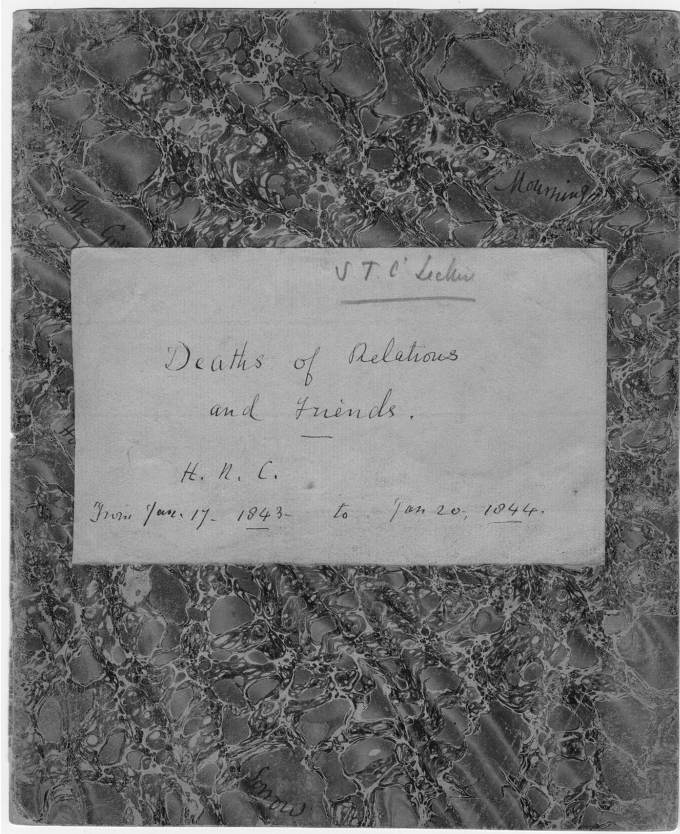 Mourning
The
S T C'
Deaths of Relations
and Friends.
H. N. C.
From Jan. 17. 1843 - to Jan 20, 1844.
Sorrow